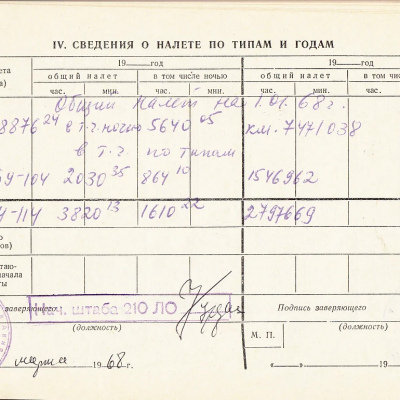 IV. СВЕДЕНИЯ О НАЛЕТЕ ПО ТИПАМ И ГОДАМ
19 год 19 год
общий налет в том числе ночью общий налет в том числе
час. мин. час. мин. час. мин. час.
Общий налет на 1.01.68 г.
8876 24 в т.ч. ночью 5640 05 км. 7471038
в т.ч. по типам
-104 2030 35 864 10 1546962
-114 3820 13 1610 22 2797669
заверяющего Нач. штаба 210 ЛО Подпись заверяющего
(должность) М. П. (должность)
марта 1968 г. «» 19